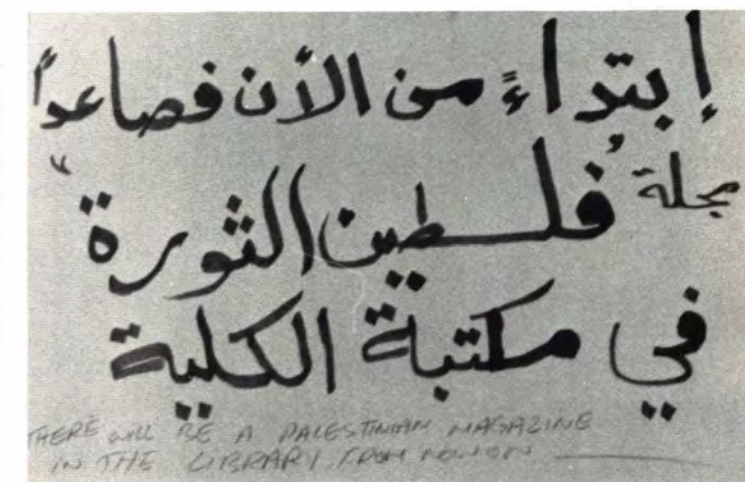 إبتداءً من الأن فصاعداً
مجلة "فلسطين الثورة"
في مكتبة الكلية
THERE WILL BE A PALESTINIAN MAGAZINE
IN THE LIBRARY FROM NOW ON